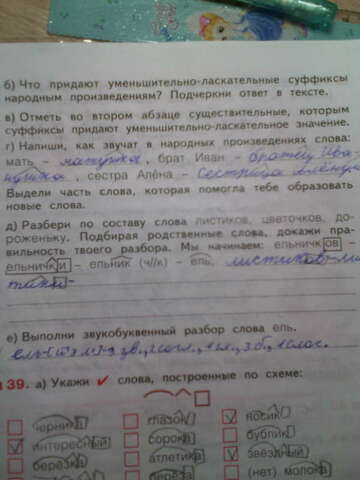 б) Что придают уменьшительно-ласкательные суффиксы
народным произведениям? Подчеркни ответ в тексте.
в) Отметь во втором абзаце существительные, которым
суффиксы придают уменьшительно-ласкательное значение.
г) Напиши, как звучат в народных произведениях слова:
мать – матушка, брат Иван – братец Ива-
нушка, сестра Алёна – сестрица Алёнушка
Выдели часть слова, которая помогла тебе образовать
новые слова.
д) Разбери по составу слова листиков, цветочков, до-
роженьку. Подбирая родственные слова, докажи пра-
вильность твоего разбора. Мы начинаем: ельничков –
ельнички – ельник (ч//к) – ель, листиков-лис
тики-
е) Выполни звукобуквенный разбор слова ель.
139. а) Укажи ✓ слова, построенные по схеме:
черника глазок носик
интересный сорока бублик
берёзка атлетика звёздный (нет) молока